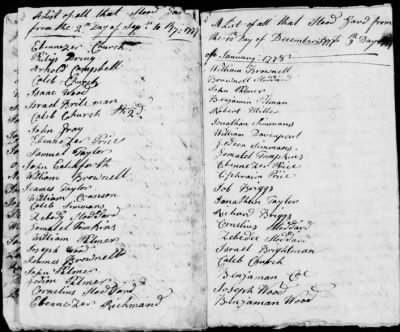 A List of all that Stood Gard
from the 2th Day of Sep to 1777
Ebenezer Church
Philip Dring
Arnold Campbell
Caleb Church
Isaac Wood
Israel Briteman
Caleb Church 2d
John Gray
Ebenezer Price
Samuel Taylor
John Caldforth
William Brownell
James Taylor
William Cranson
Caleb Simmans
Zebedy Stoddard
Gamalel Tomkins
William Palmer
Joseph Wood
James Brownell
John Palmer
Gidian Palmer
Cornelius Stoddard
Ebenezer Richmand
A List of all that Stood Gard from
the Day of December 1777 to Day
of January 1778
William Brownell
Brownell Stoddard
John Palmer
Benjamin Pitman
Robert Miller
Jonathan Simmans
William Davenport
Gedeon Simmans
Gamalel Tompkins
Ebenezer Price
Ephraim Price
Job Briggs
Jonathan Taylor
Richard Briggs
Cornelius Stoddard
Zebedee Stoddard
Israel Brightman
Caleb Church
Benjaman Coe
Joseph Wood
Benjaman Wood